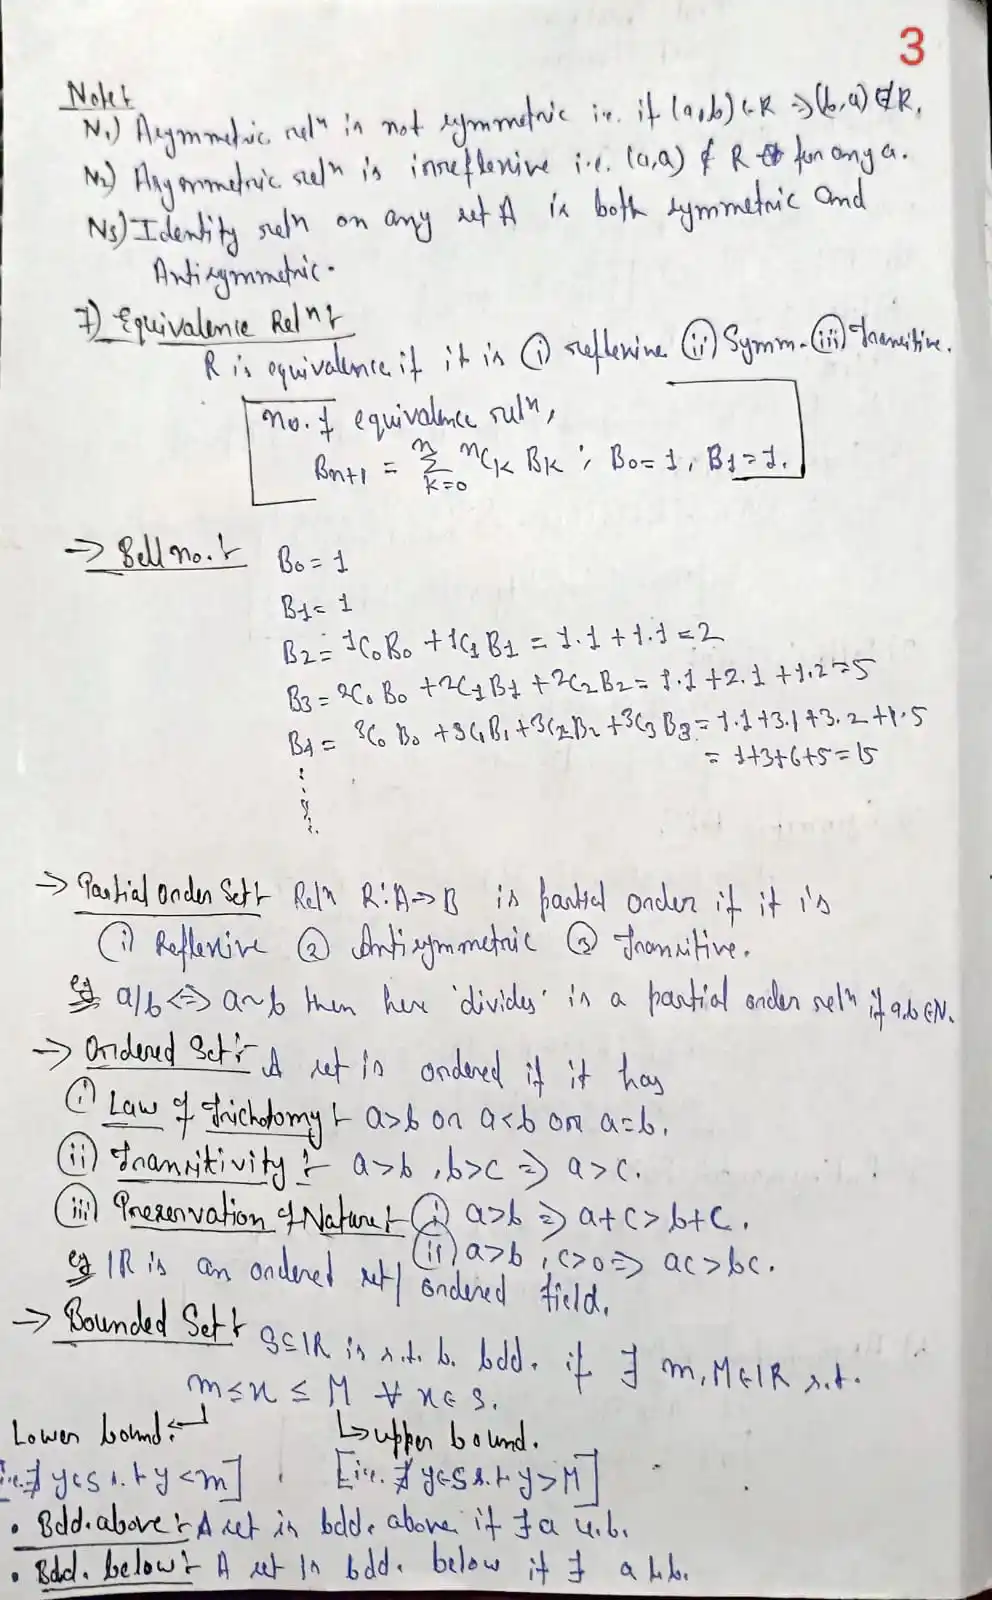 3
Note:-
N1) Asymmetric relⁿ is not symmetric i.e. if (a,b) ∈ R ⇒ (b,a) ∉ R.
N2) Asymmetric relⁿ is irreflexive i.e. (a,a) ∉ R for any a.
N3) Identity relⁿ on any set A is both symmetric and
Antisymmetric.
7) Equivalence Relⁿ:-
R is equivalence if it is (i) reflexive (ii) Symm. (iii) Transitive.
no. of equivalence relⁿ,
Bn+1 = Σ_{k=0}^{n} ⁿCk Bk ; B0 = 1, B1 = 1.
→ Bell no.:- B0 = 1
B1 = 1
B2 = 1C0 B0 + 1C1 B1 = 1.1 + 1.1 = 2
B3 = 2C0 B0 + 2C1 B1 + 2C2 B2 = 1.1 + 2.1 + 1.2 = 5
B4 = 3C0 B0 + 3C1 B1 + 3C2 B2 + 3C3 B3 = 1.1 + 3.1 + 3.2 + 1.5
= 1+3+6+5 = 15
→ Partial Order Set:- Relⁿ R: A → B is partial order if it is
(i) Reflexive (2) Antisymmetric (3) Transitive.
eg a/b ⇔ a~b then here 'divides' is a partial order relⁿ if a,b ∈ N.
→ Ordered Set:- A set is ordered if it has
(i) Law of Trichotomy:- a>b or a<b or a=b.
(ii) Transitivity:- a>b, b>c ⇒ a>c.
(iii) Preservation of Nature:- (i) a>b ⇒ a+c > b+c.
(ii) a>b, c>0 ⇒ ac > bc.
eg IR is an ordered set / ordered field.
→ Bounded Set:- S ⊆ IR is s.t. b. bdd. if ∃ m, M ∈ IR s.t.
m ≤ x ≤ M ∀ x ∈ S.
Lower bound. ↲ ↳ upper bound.
[i.e. ∄ y ∈ S s.t y < m] , [i.e. ∄ y ∈ S s.t y > M]
• Bdd. above:- A set is bdd. above if ∃ a u.b.
• Bdd. below:- A set is bdd. below if ∃ a l.b.